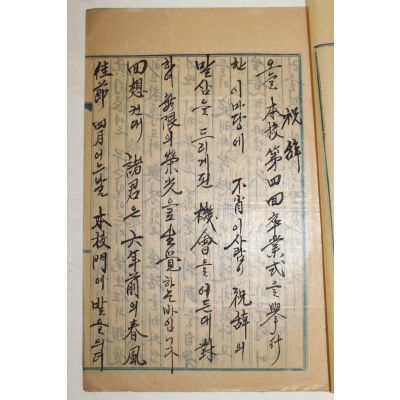 祝辞
오늘 本校 第四回 卒業式을 擧行
한 이마당에 不肖 이사람이 祝辞의
말삼을 드리게된 機會을 어든대 對
하야 無限의 榮光으로 生覺하는바임니다
回想컨대 諸君은 六年前의 春風
佳節 四月 어느날 本校門에 발을 드려